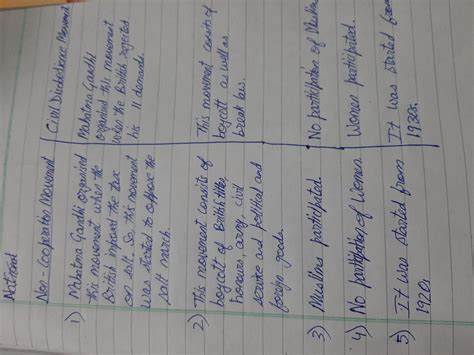 National
Non-Cooperation Movement
Civil Disobedience Movement
1) Mahatma Gandhi organised
this movement when the
British imposed the tax
on salt. So, this movement
was started to oppose the
salt march.
Mahatma Gandhi
organised this movement
when the British rejected
his 11 demands.
2) This movement consists of
boycott of British titles,
honours, army, civil
service and political and
foreign goods.
This movement consists of
boycott as well as
break laws.
3) Muslims participated.
No participation of Muslims
4) No participation of Women
Women participated.
5) It was started from
1920s.
It was started from
1930s.